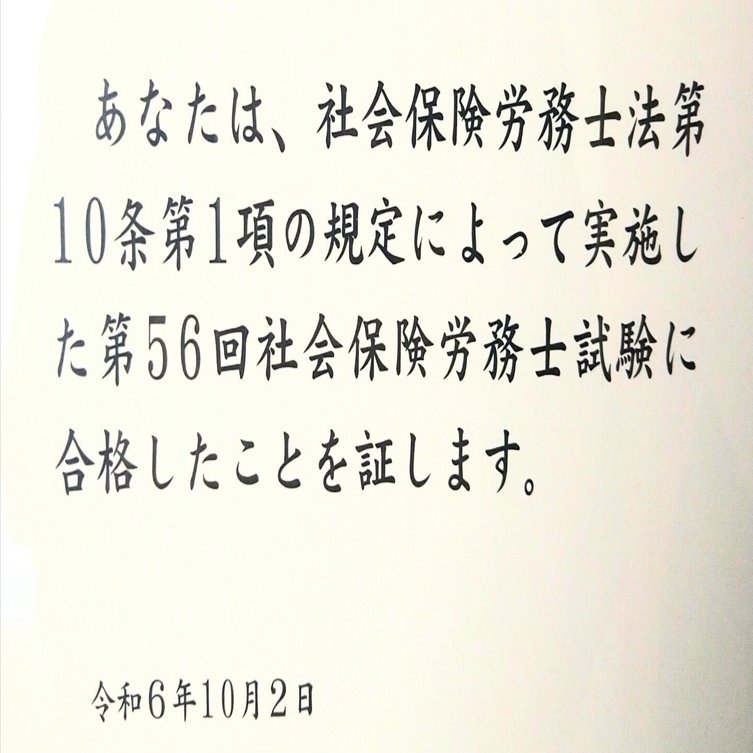 あなたは、社会保険労務士法第
10条第1項の規定によって実施し
た第56回社会保険労務士試験に
合格したことを証します。
令和6年10月2日